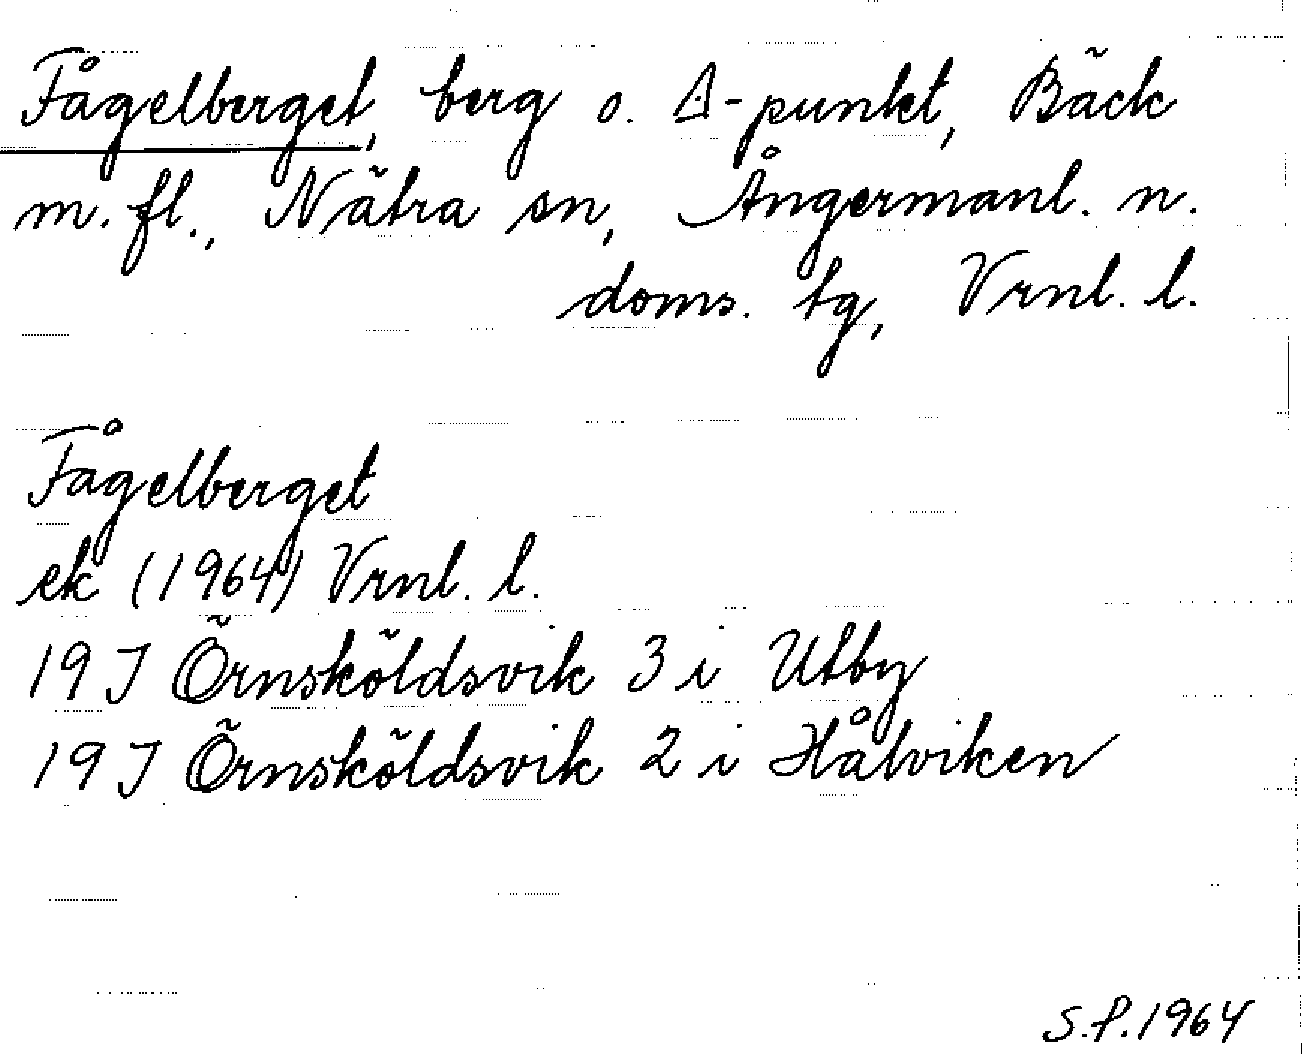 Fågelberget, berg o. Δ-punkt, Bäck
m.fl., Nätra sn, Ångermanl. n.
doms. tg, Vrnl. l.
Fågelberget
ek (1964) Vrnl. l.
19 J Örnsköldsvik 3 i Utby
19 J Örnsköldsvik 2 i Hålviken
S.P. 1964